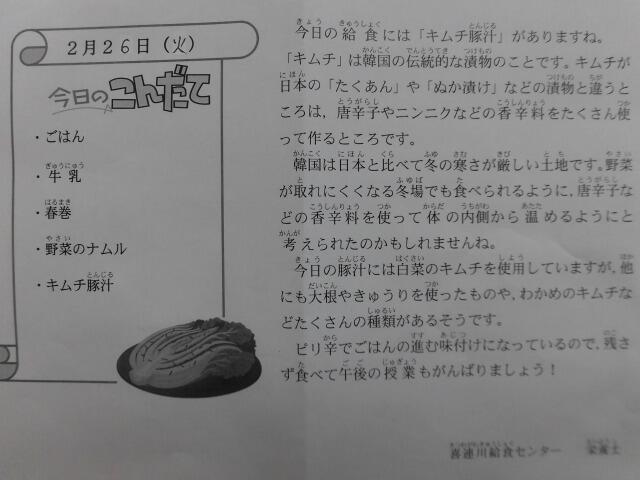 2月26日（火）
今日のこんだて
・ごはん
・牛乳
・春巻
・野菜のナムル
・キムチ豚汁
今日の給食には「キムチ豚汁」がありますね。
「キムチ」は韓国の伝統的な漬物のことです。キムチが
日本の「たくあん」や「ぬか漬け」などの漬物と違うと
ころは，唐辛子やニンニクなどの香辛料をたくさん使
って作るところです。
韓国は日本と比べて冬の寒さが厳しい土地です。野菜
が取れにくくなる冬場でも食べられるように，唐辛子な
どの香辛料を使って体の内側から温めるようにと
考えられたのかもしれませんね。
今日の豚汁には白菜のキムチを使用していますが，他
にも大根やきゅうりを使ったものや，わかめのキムチな
どたくさんの種類があるそうです。
ピリ辛でごはんの進む味付けになっているので，残さ
ず食べて午後の授業もがんばりましょう！
喜連川給食センター　栄養士